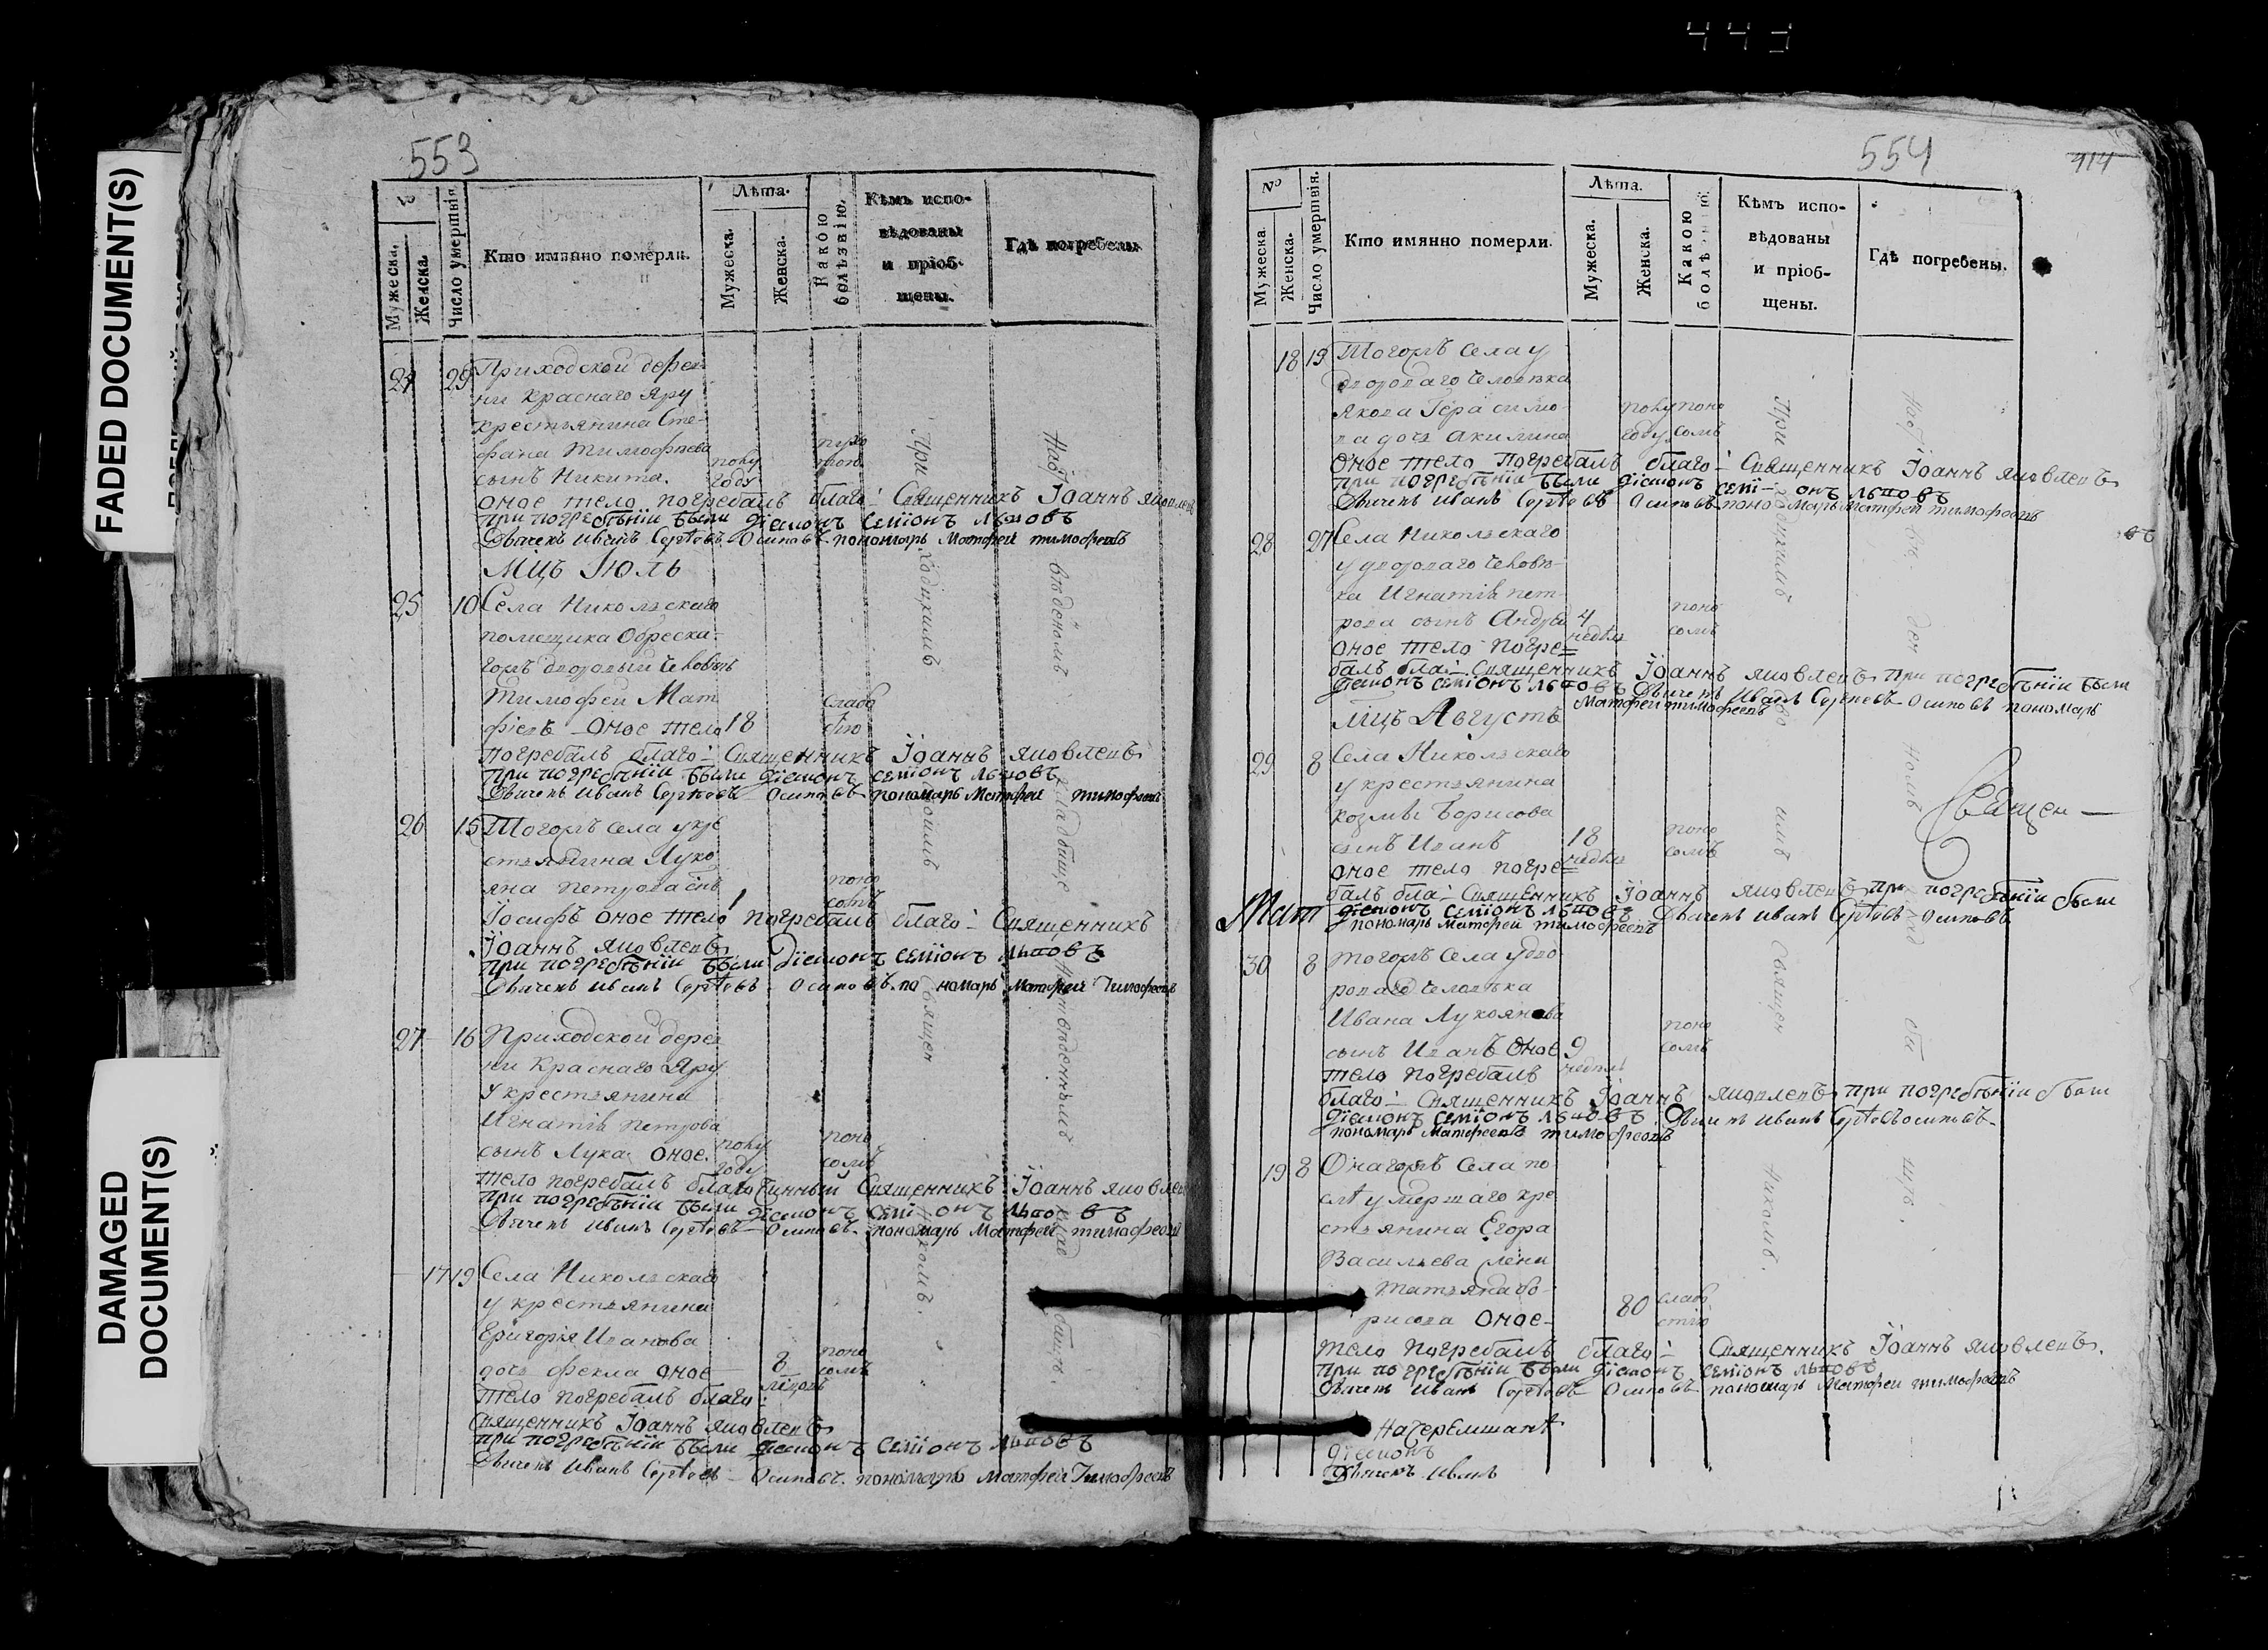 443
FADED DOCUMENT(S)
DAMAGED
DOCUMENT(S)
553
Мужеска.
Женска.
Число умершвія
Кто имянно померли.
Лѣта.
Мужеска.
Женска.
Какою болѣзнію.
Кѣмъ испо-
вѣдованы
и пріоб-
щены.
Гдѣ погребены
24 29 Приходской дерев
ни Краснаго Яру
крестьянина Сте-
фана Тимофеева
сынъ Никита. полу году
оное тело погребалъ благо: Священникъ Іоаннъ Яковлевъ
при погребѣніи были діаконъ Семіонъ Львовъ
Дьячекъ Иванъ Сергѣевъ Осиповъ пономарь Матфей Тимофеевъ
Мцъ Іюль
25 10 Села Никольскаго
помещика Обреска-
гожъ дворовый человѣкъ
Тимофей Мат
фіевъ оное тело 18 слабо стію
погребалъ благо: Священникъ Іоаннъ Яковлевъ
при погребѣніи были діаконъ Семіонъ Львовъ
Дьячекъ Иванъ Сергѣевъ Осиповъ пономарь Матфей Тимофеевъ
26 15 Тогожъ села у кре
стьянина Луко
яна Петрова снъ поно сомъ
Іосифъ оное тело 1 погребалъ благо: Священникъ
Іоаннъ Яковлевъ
при погребѣніи были Діаконъ Семіонъ Львовъ
Дьячекъ Иванъ Сергѣевъ Осиповъ пономарь Матфей Тимофеевъ
27 16 Приходской дерев
ни Краснаго Яру
у крестьянина
Игнатія Петрова
сынъ Лука оное полу году поно сомъ
тело погребалъ благочинный Священникъ Іоаннъ Яковлев
при погребѣніи были діаконъ Семіонъ Львовъ
Дьячекъ Иванъ Сергѣевъ Осиповъ пономарь Матфей Тимофеевъ
17 19 Села Никольскаго
у крестьянина
Григорія Иванова
дочь Фекла оное 8 летъ поно сомъ
тело погребалъ благо:
Священникъ Іоаннъ Яковлевъ
при погребѣніи были діаконъ Семіонъ Львовъ
Дьячекъ Иванъ Сергѣевъ Осиповъ пономарь Матфей Тимофеевъ
554
414
№
Мужеска.
Женска.
Число умершвія.
Кто имянно померли.
Лѣта.
Мужеска.
Женска.
Какою болѣзнію.
Кѣмъ испо-
вѣдованы
и пріоб-
щены.
Гдѣ погребены.
18 19 Тогожъ села у
двороваго человѣка
Якова Герасимо-
ва дочь Акилина полу году поно сомъ
Оное тело погребалъ благо: Священникъ Іоаннъ Яковлевъ
при погребѣніи были діаконъ Семіонъ Львовъ
Дьячекъ Иванъ Сергѣевъ Осиповъ пономарь Матфей Тимофеевъ
28 27 Села Никольскаго
у двороваго человѣ-
ка Игнатія Пет-
рова сынъ Андрѣй 4 неделъ поно сомъ
оное тело погре=
балъ бла: Священникъ Іоаннъ Яковлевъ при погребѣніи были
діаконъ Семіонъ Львовъ Дьячекъ Иванъ Сергѣевъ Осиповъ пономарь
Матфей Тимофеевъ
Мцъ Августъ
29 8 Села Никольскаго
у крестьянина
Козмы Борисова
сынъ Иванъ 18 неделъ поно сомъ
оное тело погре=
балъ бла: Священникъ Іоаннъ Яковлевъ при погребѣніи были
Діаконъ Семіонъ Львовъ Дьячекъ Иванъ Сергѣевъ Осиповъ
пономарь Матфей Тимофеевъ
Мат
Священ
30 8 Тогожъ села у дво
роваго человѣка
Ивана Лукоянова
сынъ Иванъ оное 9 неделъ поно сомъ
тело погребалъ
благо: Священникъ Іоаннъ Яковлевъ при погребѣніи были
діаконъ Семіонъ Львовъ Дьячекъ Иванъ Сергѣевъ Осиповъ
пономарь Матфеевъ Тимофеевъ
19 8 Онагожъ села по
слѣ умершаго кре
стьянина Егора
Васильева жена
Татьяна Бо-
рисова оное 80 слабо стію
тело погребалъ благо: Священникъ Іоаннъ Яковлевъ.
при погребѣніи были діаконъ Семіонъ Львовъ
Дьячекъ Иванъ Сергѣевъ Осиповъ пономарь Матфей Тимофеевъ
на Черемшанѣ
Діаконъ
Дьячекъ Иванъ